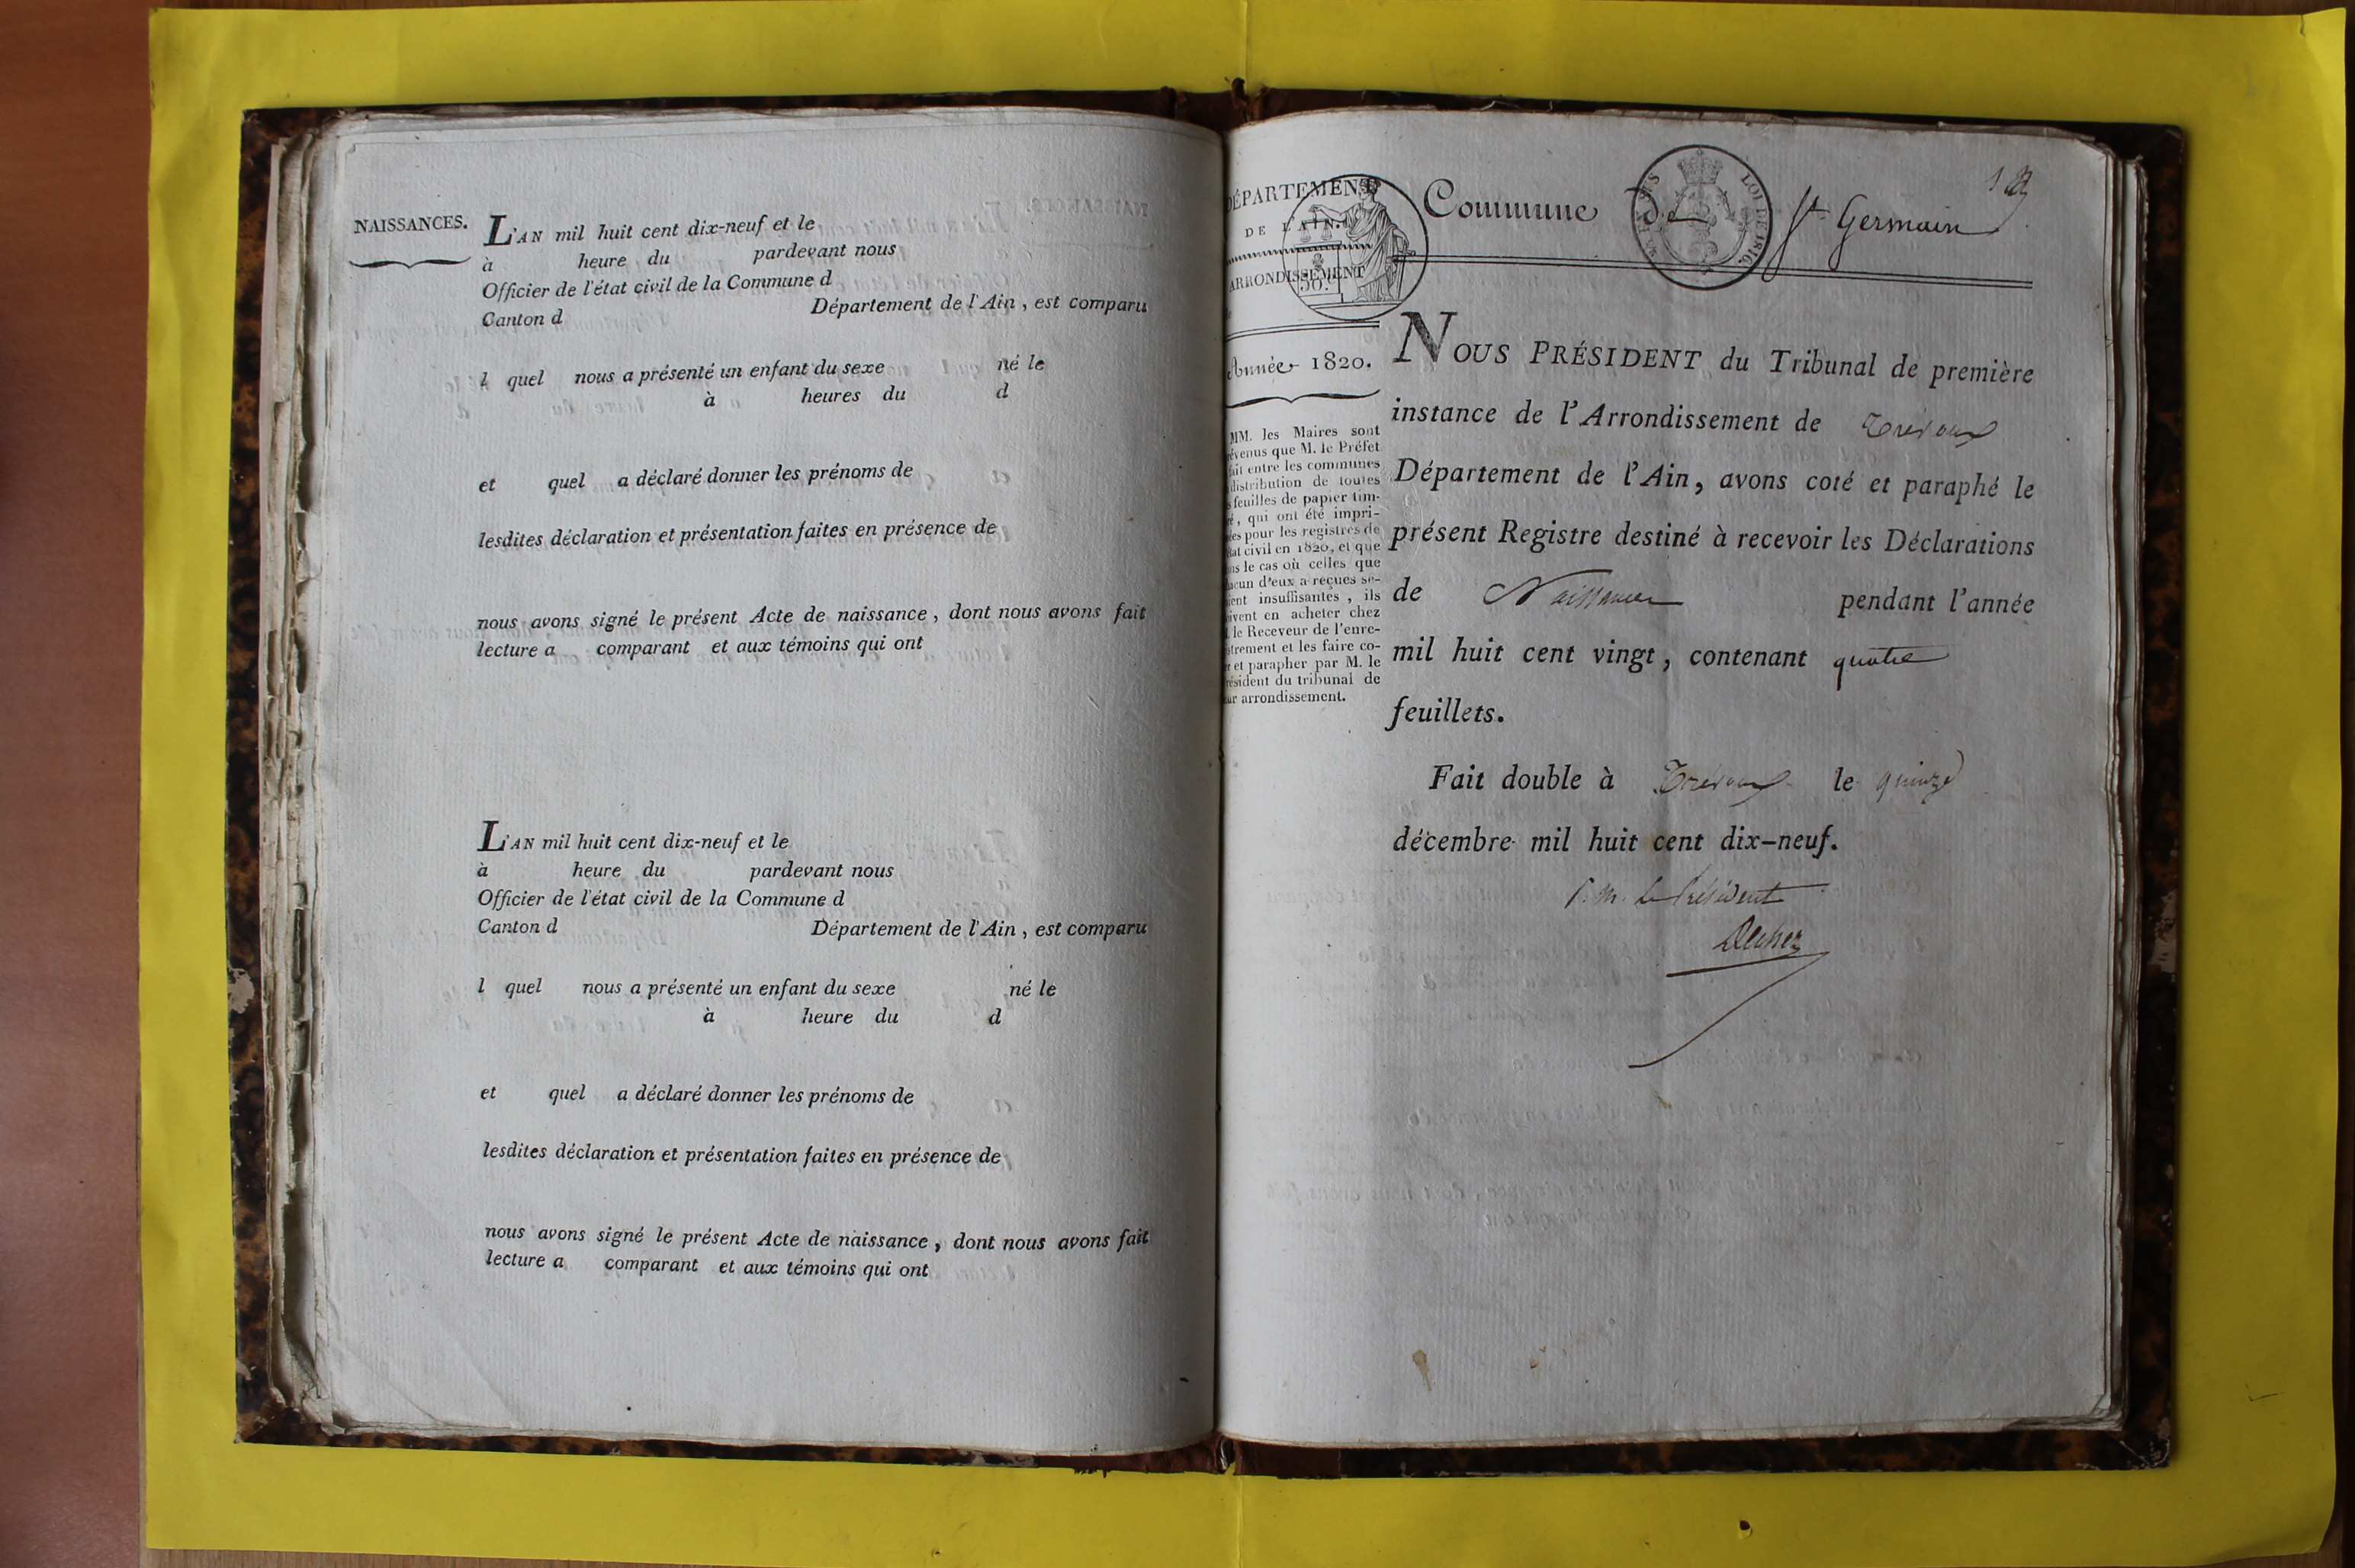 NAISSANCES.
L'AN mil huit cent dix-neuf et le
à heure du pardevant nous
Officier de l'état civil de la Commune d
Canton d Département de l'Ain , est comparu
l quel nous a présenté un enfant du sexe né le
à heures du d
et quel a déclaré donner les prénoms de
lesdites déclaration et présentation faites en présence de
nous avons signé le présent Acte de naissance , dont nous avons fait
lecture a comparant et aux témoins qui ont
L'AN mil huit cent dix-neuf et le
à heure du pardevant nous
Officier de l'état civil de la Commune d
Canton d Département de l'Ain , est comparu
l quel nous a présenté un enfant du sexe né le
à heure du d
et quel a déclaré donner les prénoms de
lesdites déclaration et présentation faites en présence de
nous avons signé le présent Acte de naissance , dont nous avons fait
lecture a comparant et aux témoins qui ont
DÉPARTEMENT
DE L'AIN.
ARRONDISSEMENT
50.
Année 1820.
MM. les Maires sont
que M. le Préfet
entre les communes
distribution de toutes
feuilles de papier tim-
, qui ont été impri-
pour les registres de
civil en 1820, et que
le cas où celles que
d'eux a reçues se-
insuffisantes , ils
en acheter chez
le Receveur de l'enre-
et les faire co-
et parapher par M. le
du tribunal de
arrondissement.
Commune de St Germain
LOI DE 1816.
NOUS PRÉSIDENT du Tribunal de première
instance de l'Arrondissement de Trévoux
Département de l'Ain, avons coté et paraphé le
présent Registre destiné à recevoir les Déclarations
de Naissances pendant l'année
mil huit cent vingt, contenant quatre
feuillets.
Fait double à Trévoux le quinze
décembre mil huit cent dix-neuf.
P. M. le Président